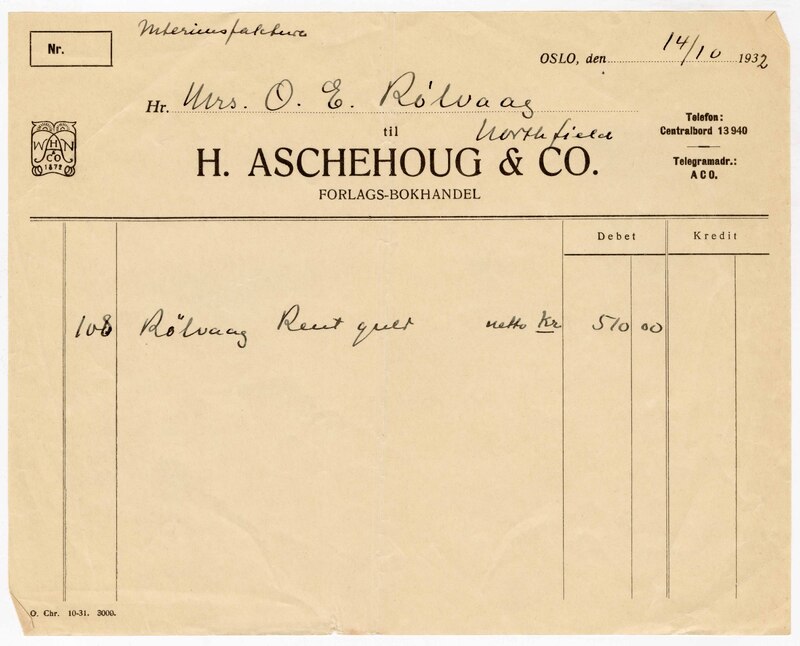 Interimsfaktura
Nr.
OSLO, den 14/10 1932
Hr. Mrs. O. E. Rølvaag
til Northfield
H. ASCHEHOUG & CO.
FORLAGS-BOKHANDEL
Telefon:
Centralbord 13 940
Telegramadr.:
ACO.
W H N
& CO
1872
Debet Kredit
108 Rölvaag Rent guld netto Kr 510 00
O. Chr. 10-31. 3000.